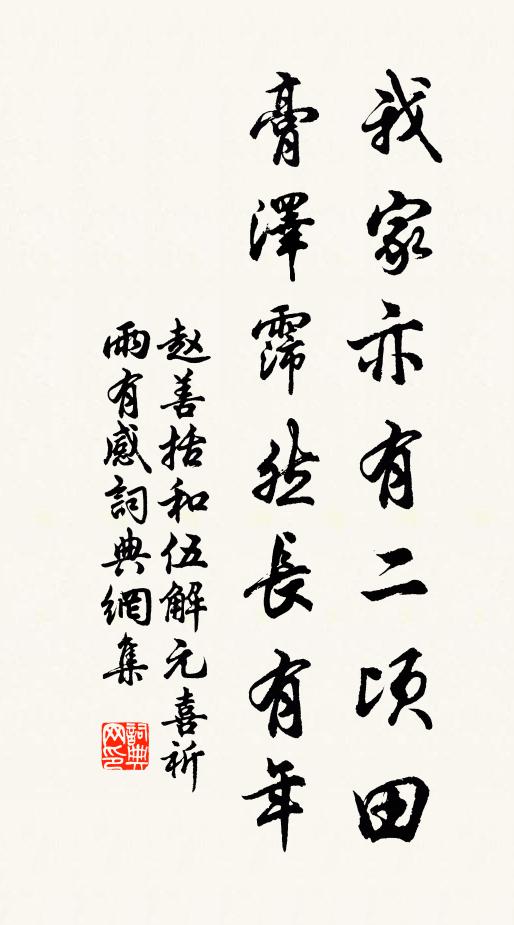 我家亦有二顷田
膏澤霈然長有年
赵善括和伍解元喜祈
雨有感詞典網集
詞典网印